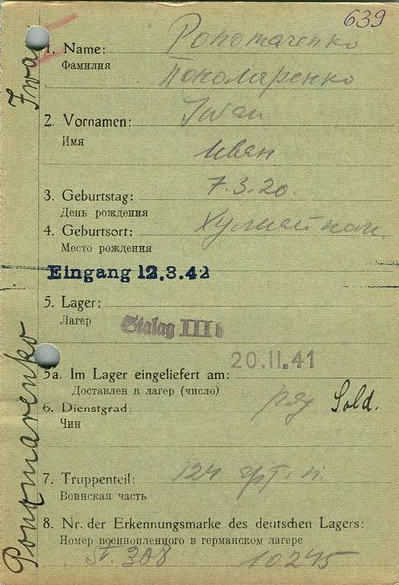 639
1. Name: Ponomarenko
Фамилия Пономаренко
2. Vornamen: Iwan
Имя
Иван
3. Geburtstag: 7.3.20.
День рождения
4. Geburtsort:
Место рождения
Eingang 12.3.42
5. Lager:
Лагер Stalag III b
20.11.41
5a. Im Lager eingeliefert am:
Доставлен в лагер (число)
6. Dienstgrad: ряд Sold.
Чин
7. Truppenteil: 124 арт. п.
Воинская часть
8. Nr. der Erkennungsmarke des deutschen Lagers:
Номер военнопленного в германском лагере
St. 308 10245
Ponomarenko Iwan